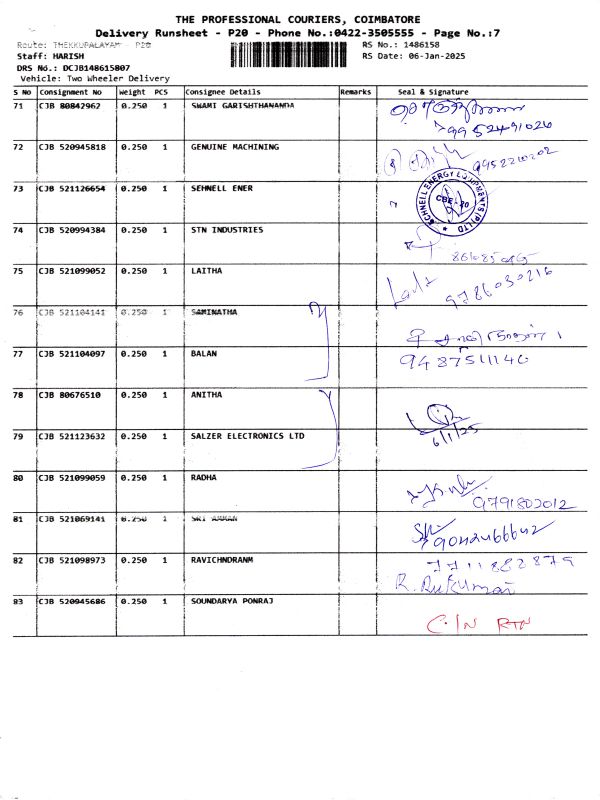 THE PROFESSIONAL COURIERS, COIMBATORE
Delivery Runsheet - P20 - Phone No.:0422-3505555 - Page No.:7
Route: THEKKUPALAYAM - P20 RS No.: 1486158
Staff: HARISH RS Date: 06-Jan-2025
DRS No.: DCJB148615807
Vehicle: Two Wheeler Delivery
S No Consignment No Weight PCS Consignee Details Remarks Seal & Signature
71 CJB 80842962 0.250 1 SWAMI GARISHTHANANDA
9952491026
72 CJB 520945818 0.250 1 GENUINE MACHINING 9952210202
73 CJB 521126654 0.250 1 SEHNELL ENER SCHNELL ENERGY EQUIPMENTS (P) LTD
74 CJB 520994384 0.250 1 STN INDUSTRIES
75 CJB 521099052 0.250 1 LAITHA 9786030216
76 CJB 521104141 0.250 1 SAMINATHA
77 CJB 521104097 0.250 1 BALAN 9487511146
78 CJB 80676510 0.250 1 ANITHA
79 CJB 521123632 0.250 1 SALZER ELECTRONICS LTD 6/1/25
80 CJB 521099059 0.250 1 RADHA
9791802012
81 CJB 521069141 0.250 1 SRI AMMAN
9042466642
82 CJB 521098973 0.250 1 RAVICHNDRANM 7711882879
R. Rukumar
83 CJB 520945686 0.250 1 SOUNDARYA PONRAJ
C.IN RTN